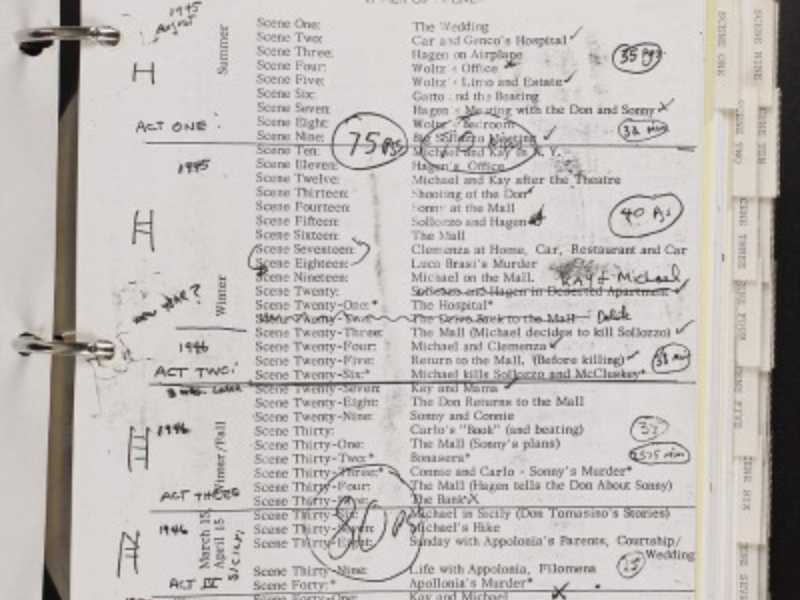 1945
August
Summer
H
Scene One: The Wedding
Scene Two: Car and Genco's Hospital ✓
Scene Three: Hagen on Airplane
Scene Four: Woltz's Office
35 Pgs
Scene Five: Woltz's Limo and Estate ✓
Scene Six: and the Beating
Scene Seven: Hagen's Meeting with the Don and Sonny
Scene Eight: Woltz' Bedroom
ACT ONE:
Scene Nine: Sollozzo Meeting ✓
75 Pgs
Scene Ten: Michael and Kay in N.Y.
1945
Scene Eleven: Hagen's Office
Scene Twelve: Michael and Kay after the Theatre
Scene Thirteen: Shooting of the Don
Scene Fourteen: Sonny at the Mall
40 Pgs
Scene Fifteen: Sollozzo and Hagen
Scene Sixteen: The Mall
Scene Seventeen: Clemenza at Home, Car, Restaurant and Car
Scene Eighteen: Luca Brasi's Murder
Scene Nineteen: Michael on the Mall. Kay & Michael
Winter
Scene Twenty: Sollozzo and Hagen in Deserted Apartment ✓
Scene Twenty-One:* The Hospital*
new year?
Scene Twenty-Two: The Drive Back to the Mall
Scene Twenty-Three: The Mall (Michael decides to kill Sollozzo) ✓
1946
Scene Twenty-Four: Michael and Clemenza ✓
Scene Twenty-Five: Return to the Mall, (Before killing) ✓
ACT TWO:
Scene Twenty-Six:* Michael kills Sollozzo and McCluskey*
Scene Twenty-Seven: Kay and Mama
Scene Twenty-Eight: The Don Returns to the Mall
Scene Twenty-Nine: Sonny and Connie
1946
Scene Thirty: Carlo's "Book" (and beating)
Scene Thirty-One: The Mall (Sonny's plans)
Scene Thirty-Two:* Bonasera*
Scene Thirty-Three:* Connie and Carlo - Sonny's Murder*
Scene Thirty-Four: The Mall (Hagen tells the Don About Sonny)
ACT THREE
Scene Thirty-Five: The Bank X
1946
March 15
April 15
Sicily
Scene Thirty-Six: Michael in Sicily (Don Tomasino's Stories)
80 P
Scene Thirty-Seven: Michael's Hike
Scene Thirty-Eight: Sunday with Appolonia's Parents, Courtship/
Wedding
Scene Thirty-Nine: Life with Appolonia, Filomena
ACT IV
Scene Forty:* Apollonia's Murder*
Scene Forty-One: Kay and Michael
SCENE ONE
SCENE TWO
SCENE THREE
SCENE FIVE
SCENE SIX
SCENE NINE
SCENE TEN